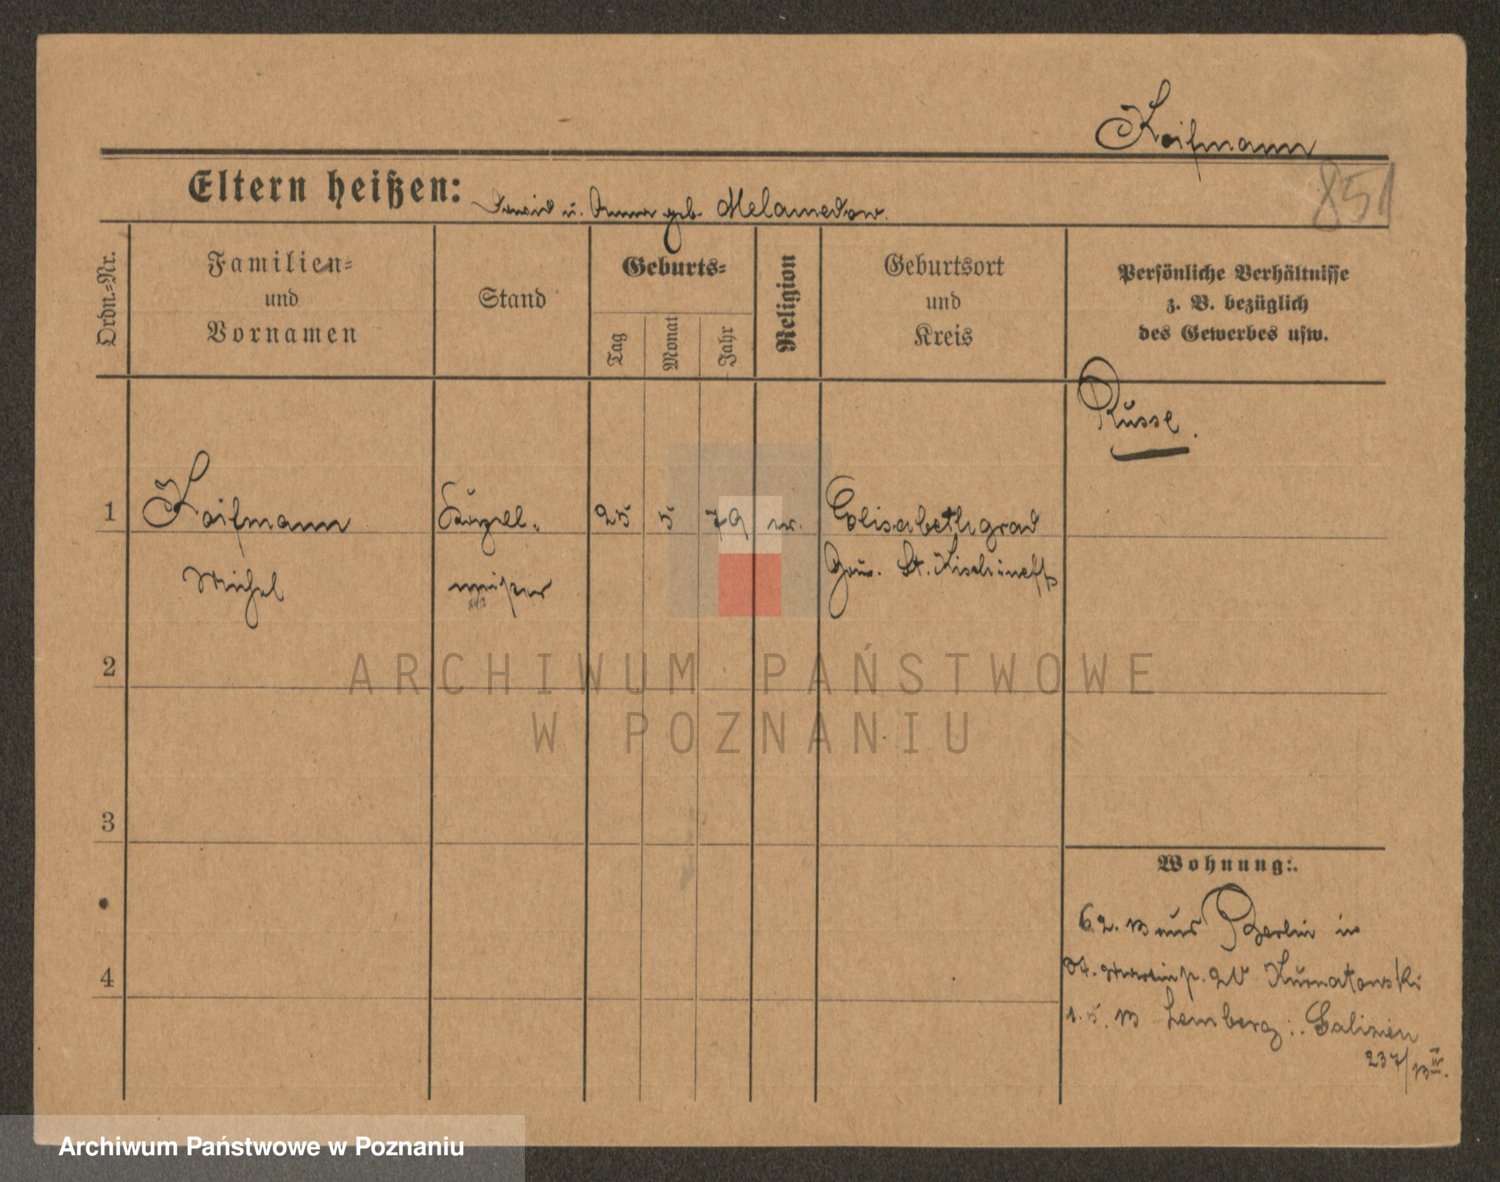 Koifmann
851
Eltern heißen: David u. Anna geb. Melamedow.
Ordn.-Nr.
Familien-
und
Vornamen
Stand
Geburts-
Tag
Monat
Jahr
Religion
Geburtsort
und
Kreis
Persönliche Verhältnisse
z. B. bezüglich
des Gewerbes usw.
Russe.
1 Koifmann 25 5 79 Elisabethgrad
Michel Gouv. St. Kischineff
2
3
4
Wohnung:
aus Berlin in
St. Martin Kurnatowski
1. 5. 13 Lemberg Galizien
237/13
ARCHIWUM PAŃSTWOWE
W POZNANIU
Archiwum Państwowe w Poznaniu